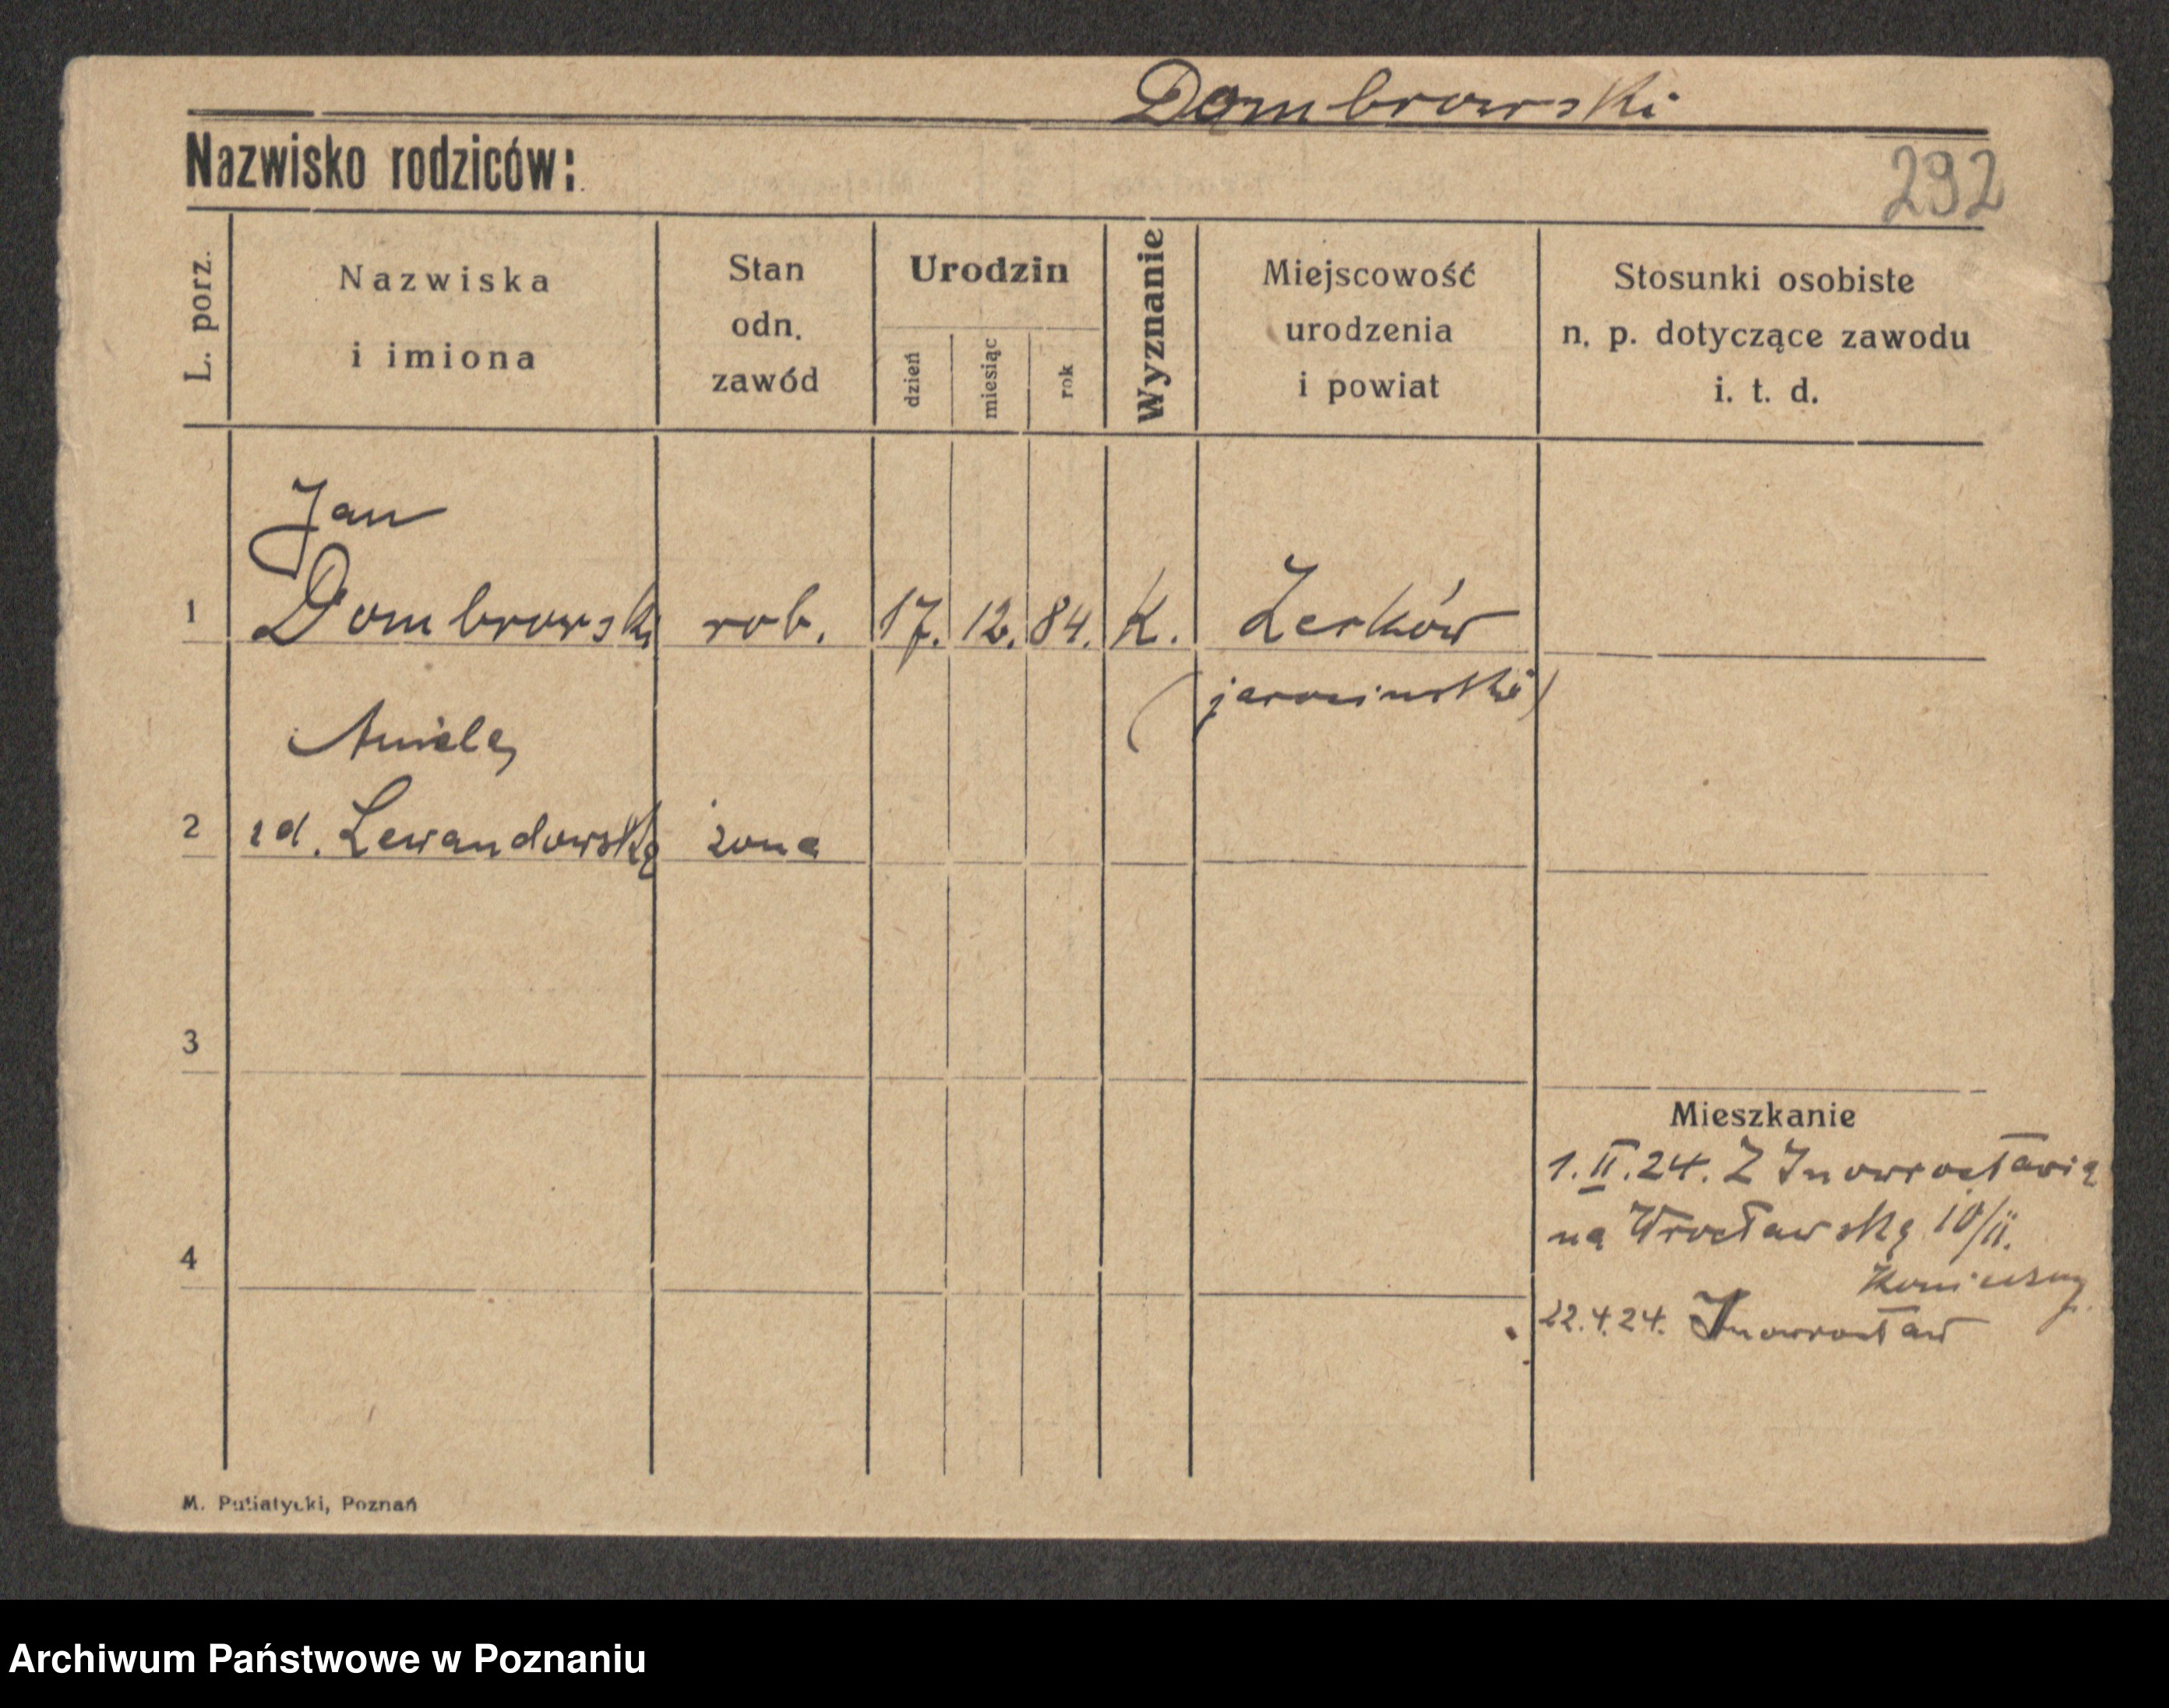 Dombrowski
Nazwisko rodziców:
292
L. porz.
Nazwiska
i imiona
Stan
odn.
zawód
Urodzin
dzień
miesiąc
rok
Wyznanie
Miejscowość
urodzenia
i powiat
Stosunki osobiste
n. p. dotyczące zawodu
i. t. d.
Jan
1 Dombrowski rob. 17. 12. 84. K. Żerków
(jarociński)
Aniela
2 zd. Lewandowska żona
3
Mieszkanie
1.II.24. Z Inowrocławia
na Wrocławską 10/II.
4
22.4.24. Inowrocław
M. Putiatycki, Poznań
Archiwum Państwowe w Poznaniu